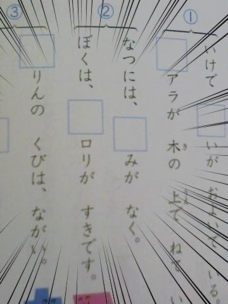 ① いけで □いが およいで いる。
□アラが 木の 上で、ねて い
② なつには、□みが なく。
ぼくは、□ロリが すきです。
③ □りんの くびは、ながい。